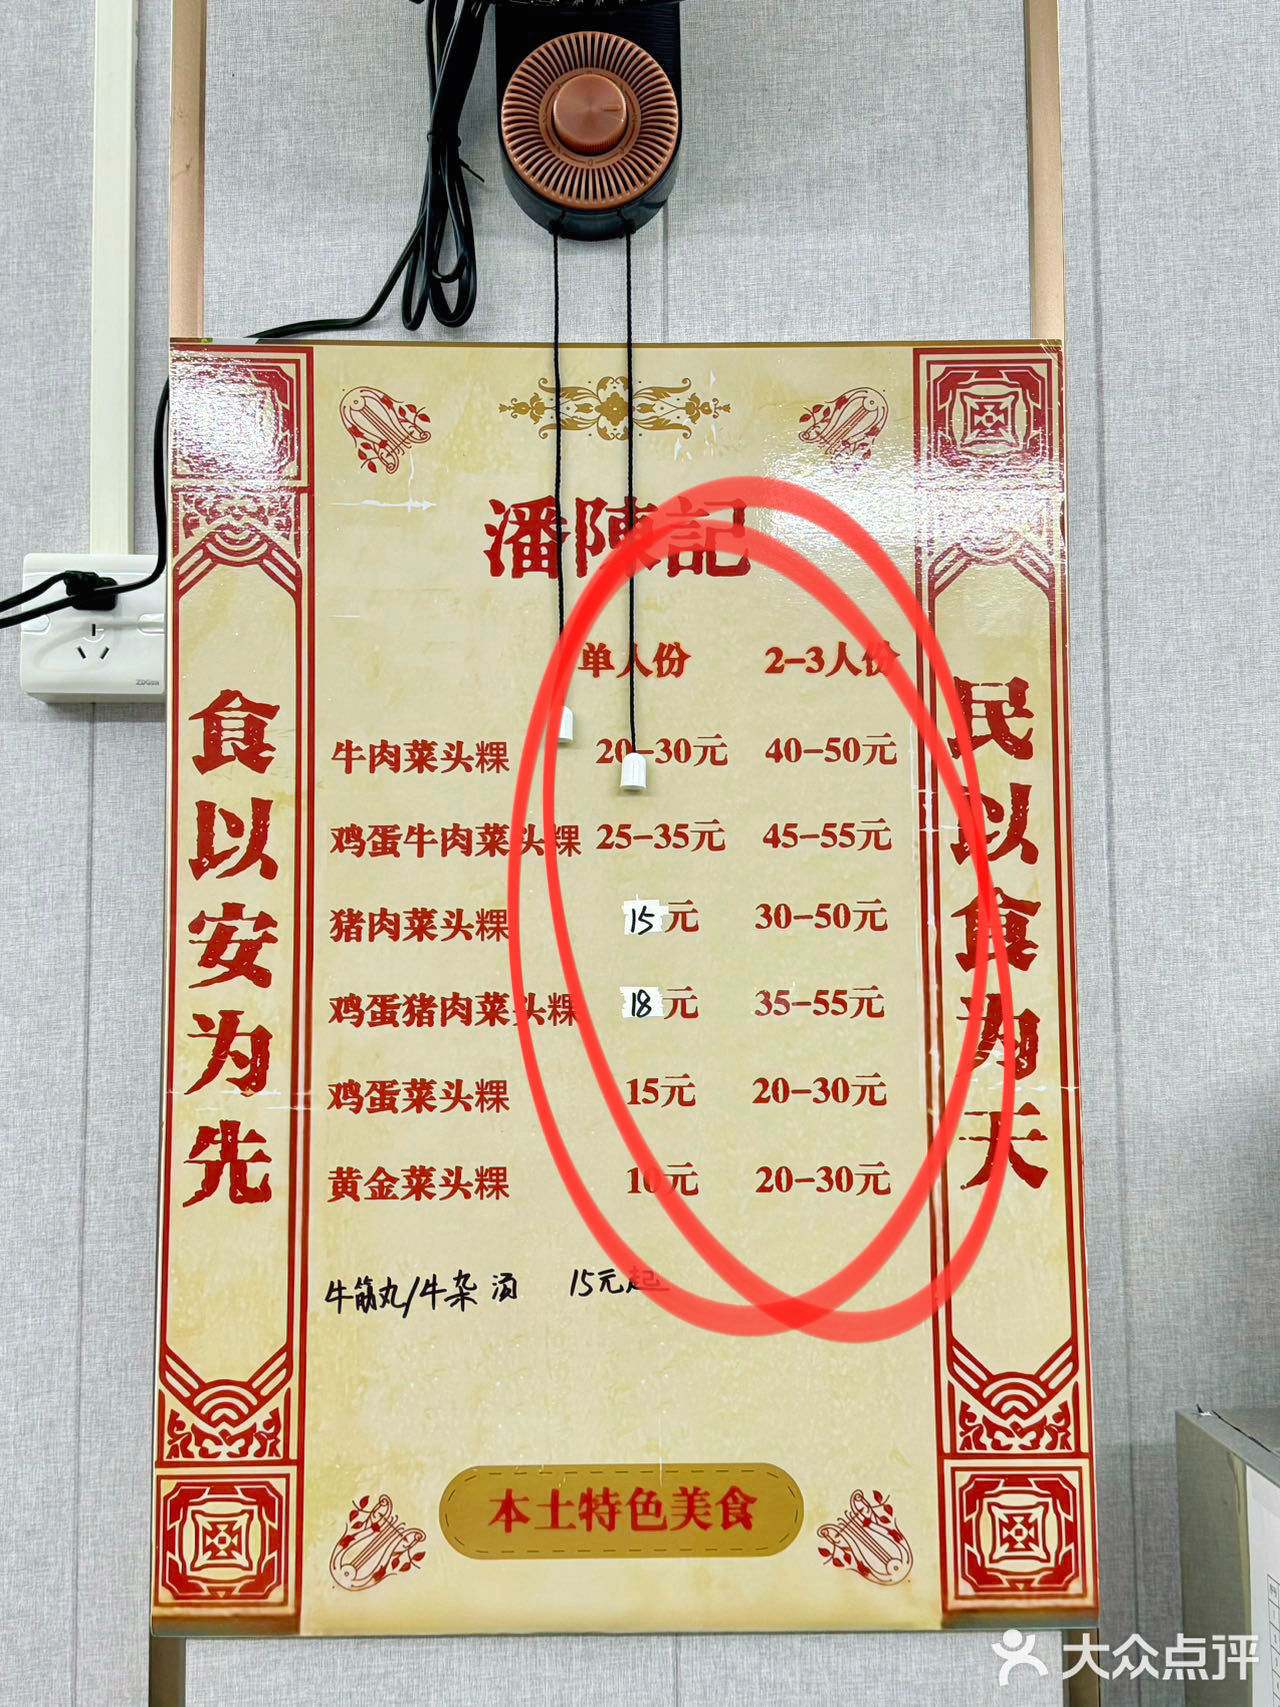 潘陳記
单人份 2-3人份
牛肉菜头粿 20-30元 40-50元
鸡蛋牛肉菜头粿 25-35元 45-55元
猪肉菜头粿 15元 30-50元
鸡蛋猪肉菜头粿 18元 35-55元
鸡蛋菜头粿 15元 20-30元
黄金菜头粿 10元 20-30元
牛筋丸/牛杂 汤 15元起
食以安为先
民以食为天
本土特色美食
大众点评